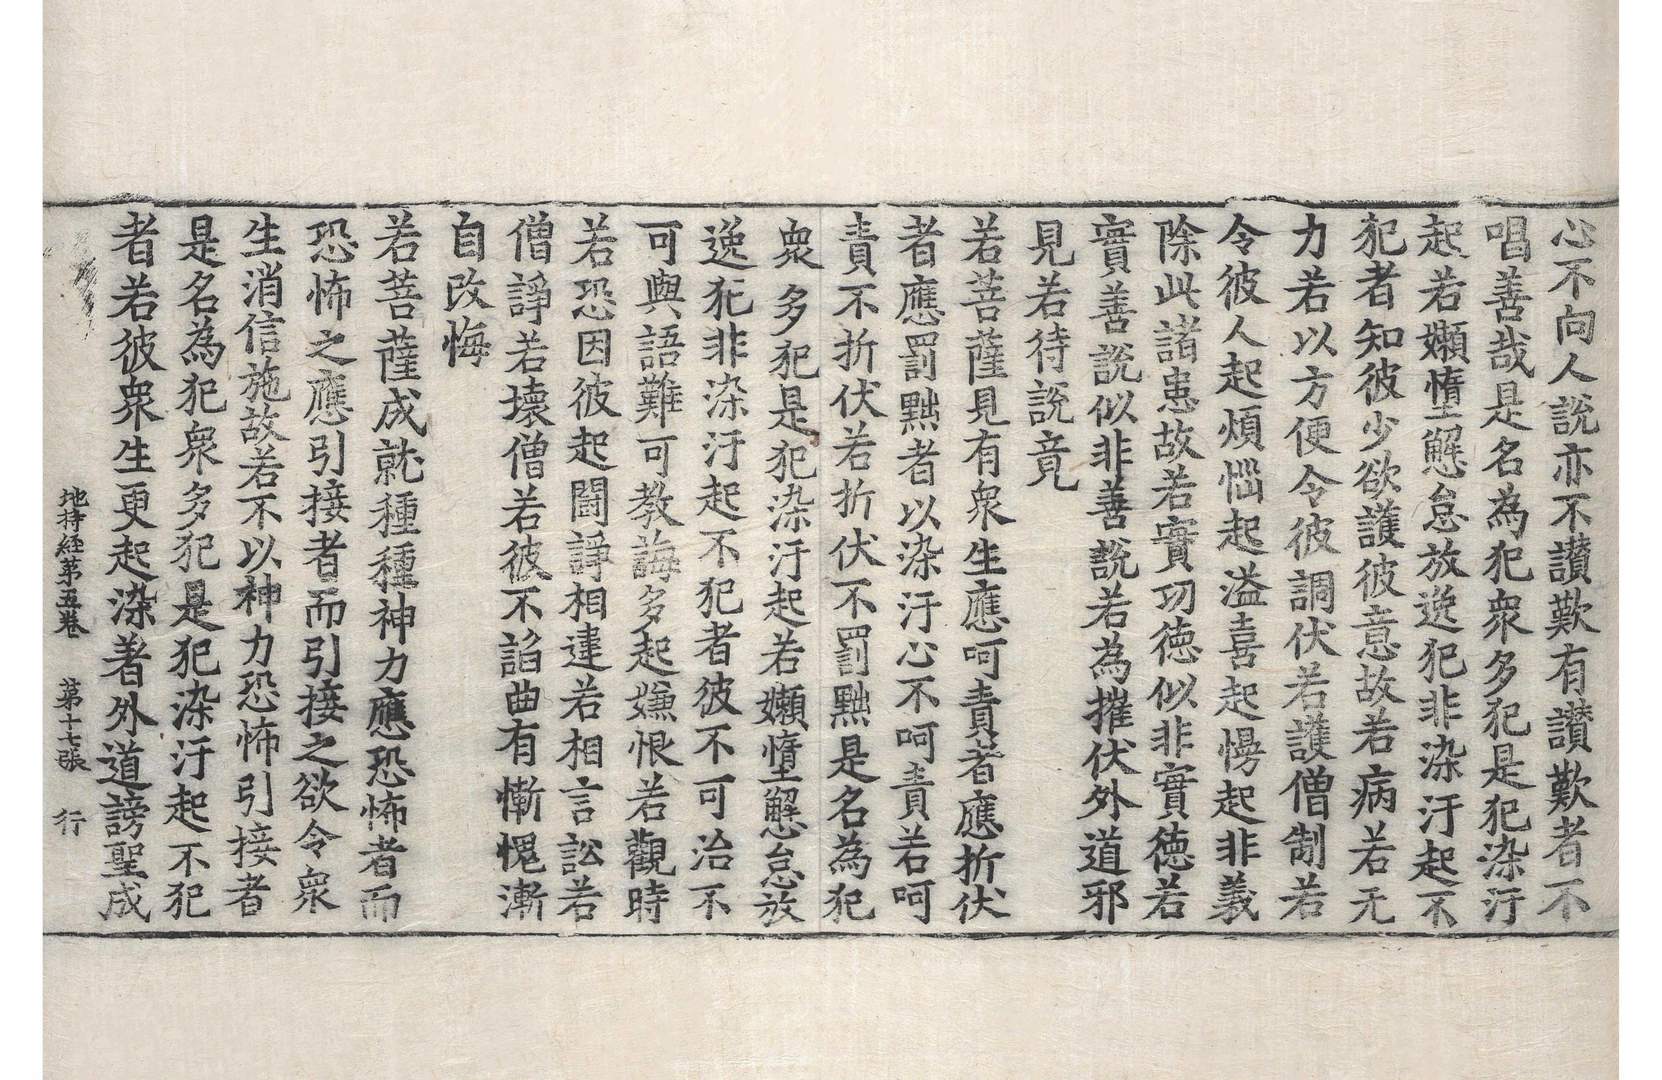 心不向人說亦不讃歎有讃歎者不
唱善哉是名為犯衆多犯是犯染汙
起若嬾惰懈怠放逸犯非染汙起不
犯者知彼少欲護彼意故若病若无
力若以方便令彼調伏若護僧制若
令彼人起煩惱起溢喜起慢起非義
除此諸患故若實功德似非實德若
實善說似非善說若為摧伏外道邪
見若待說竟
若菩薩見有衆生應呵責者應折伏
者應罰黜者以染汙心不呵責若呵
責不折伏若折伏不罰黜是名為犯
衆多犯是犯染汙起若嬾惰懈怠放
逸犯非染汙起不犯者彼不可治不
可與語難可教誨多起嫌恨若觀時
若恐因彼起鬪諍相違若相言訟若
僧諍若壞僧若彼不諂曲有慚愧漸
自改悔
若菩薩成就種種神力應恐怖者而
恐怖之應引接者而引接之欲令衆
生消信施故若不以神力恐怖引接者
是名為犯衆多犯是犯染汙起不犯
者若彼衆生更起染著外道謗聖成
地持経第五卷　第十七張　行